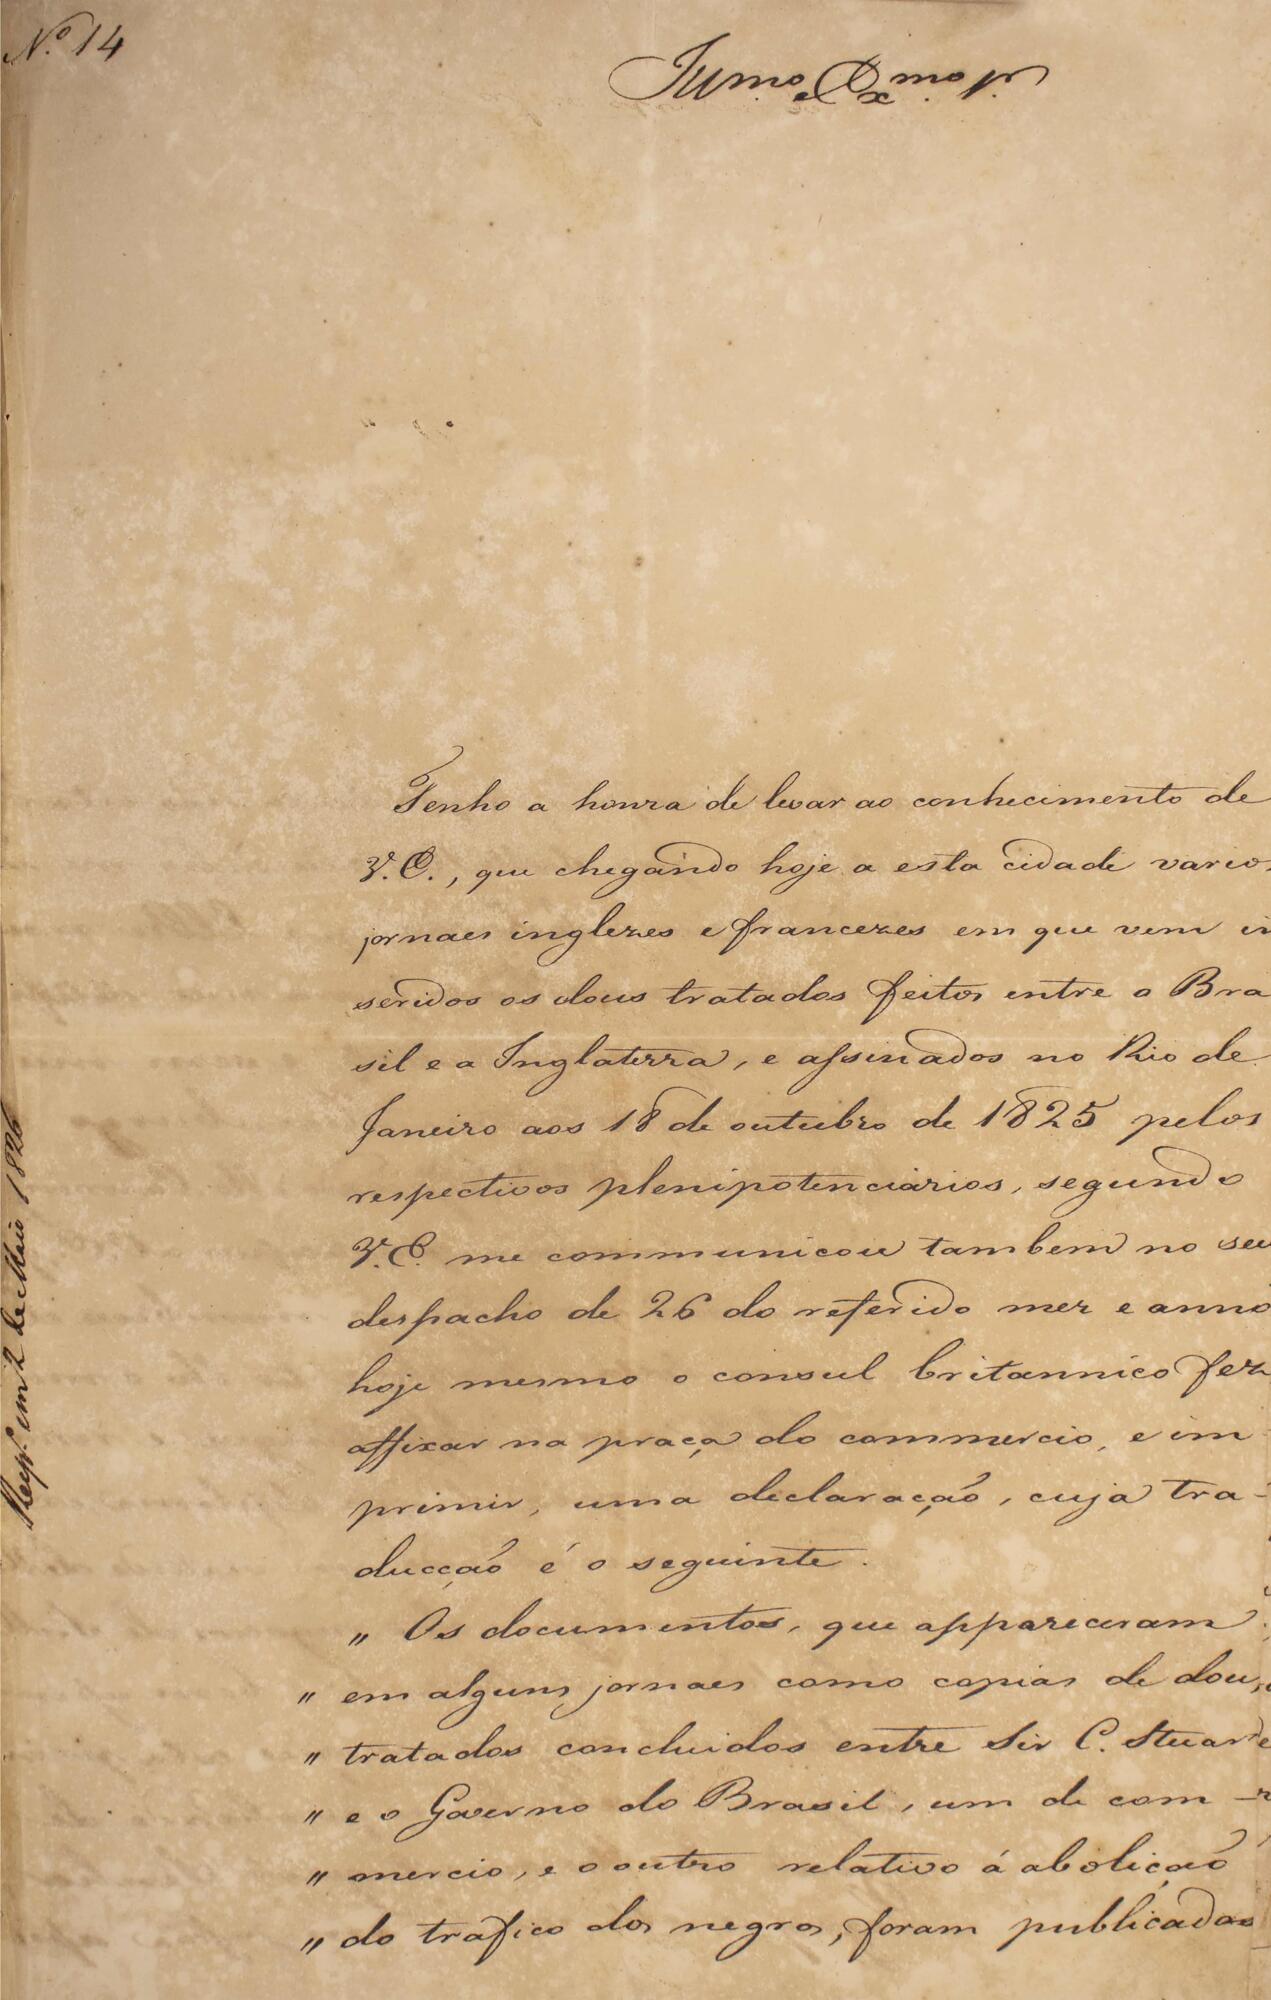 N.º 14
Illmo. e Exmo. Sr.
Tenho a honra de levar ao conhecimento de
V. E., que chegando hoje a esta cidade vario
jornaes inglezes e francezes em que vem in
seridos os dous tratados feitos entre o Bra
sil e a Inglaterra, e assinados no Rio de
Janeiro aos 18 de outubro de 1825 pelos
respectivos plenipotenciarios, segundo
V. E. me communicou tambem no seu
despacho de 26 do referido mez e anno
hoje mesmo o consul britannico fez
affixar na praça do commercio, e im
primir, uma declaração, cuja tra-
ducção é o seguinte.
" Os documentos, que appareceram
" em alguns jornaes como copias de dou
" tratados concluidos entre Sir C. Stuart
" e o Governo do Brasil, um de com-
" mercio, e o outro relativo á abolição
" do trafico dos negros, foram publicados
Resp. em 2 de Maio 1826